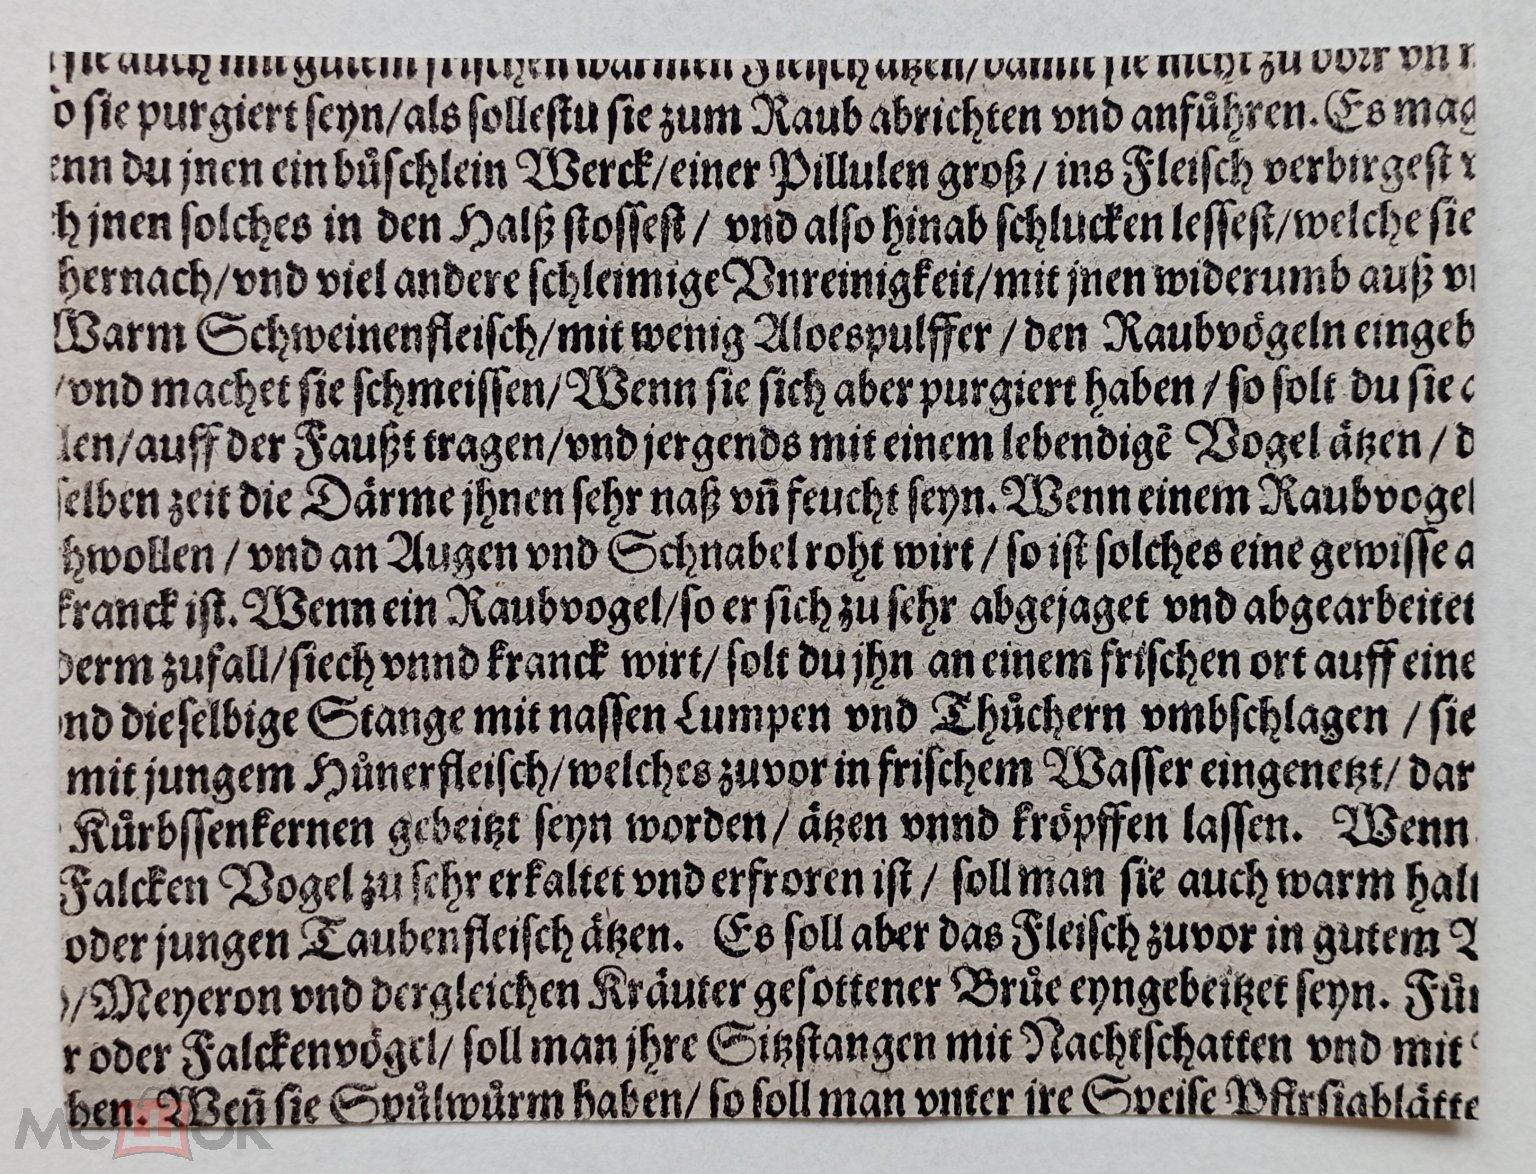 sie auch mit gutem frischen warmen Fleisch ätzen/damit sie nicht zu dörr vn
so sie purgiert seyn/als sollestu sie zum Raub abrichten vnd anfuͤhren. Es mag
enn du jnen ein buͤschlein Werck/einer Pillulen groß/ ins Fleisch verbirgest
h jnen solches in den Halß stossest/ vnd also hinab schlucken lessest/welche sie
hernach/vnd viel andere schleimige Vnreinigkeit/mit jnen widerumb auß
Warm Schweinenfleisch/mit wenig Aloespulffer /den Raubvögeln eingeb
/vnd machet sie schmeissen/Wenn sie sich aber purgiert haben / so solt du sie
len/auff der Faußt tragen/vnd jergends mit einem lebendigẽ Vogel ätzen / d
selben zeit die Därme jhnen sehr naß vñ feucht seyn. Wenn einem Raubvogel
hwollen / vnd an Augen vnd Schnabel roht wirt / so ist solches eine gewisse a
kranck ist. Wenn ein Raubvogel/so er sich zu sehr abgejaget vnd abgearbeitet
derm zufall/siech vnnd kranck wirt/ solt du jhn an einem frischen ort auff eine
nd dieselbige Stange mit nassen Lumpen vnd Thuͤchern vmbschlagen / sie
mit jungem Huͤnerfleisch/welches zuvor in frischem Wasser eingenetzt/ dar
Kuͤrbssenkernen gebeitzt seyn worden/ ätzen vnnd kröpffen lassen. Wenn
Falcken Vogel zu sehr erkaltet vnd erfroren ist / soll man sie auch warm halt
oder jungen Taubenfleisch ätzen. Es soll aber das Fleisch zuvor in gutem
/Meyeron vnd dergleichen Kräuter gesottener Bruͤe eyngebeitzet seyn. Fuͤr
r oder Falckenvögel/ soll man jhre Sitzstangen mit Nachtschatten vnd mit
hen. Weñ sie Spuͤlwuͤrm haben/ so soll man vnter ire Speise Pfirsigblätte
Мешок